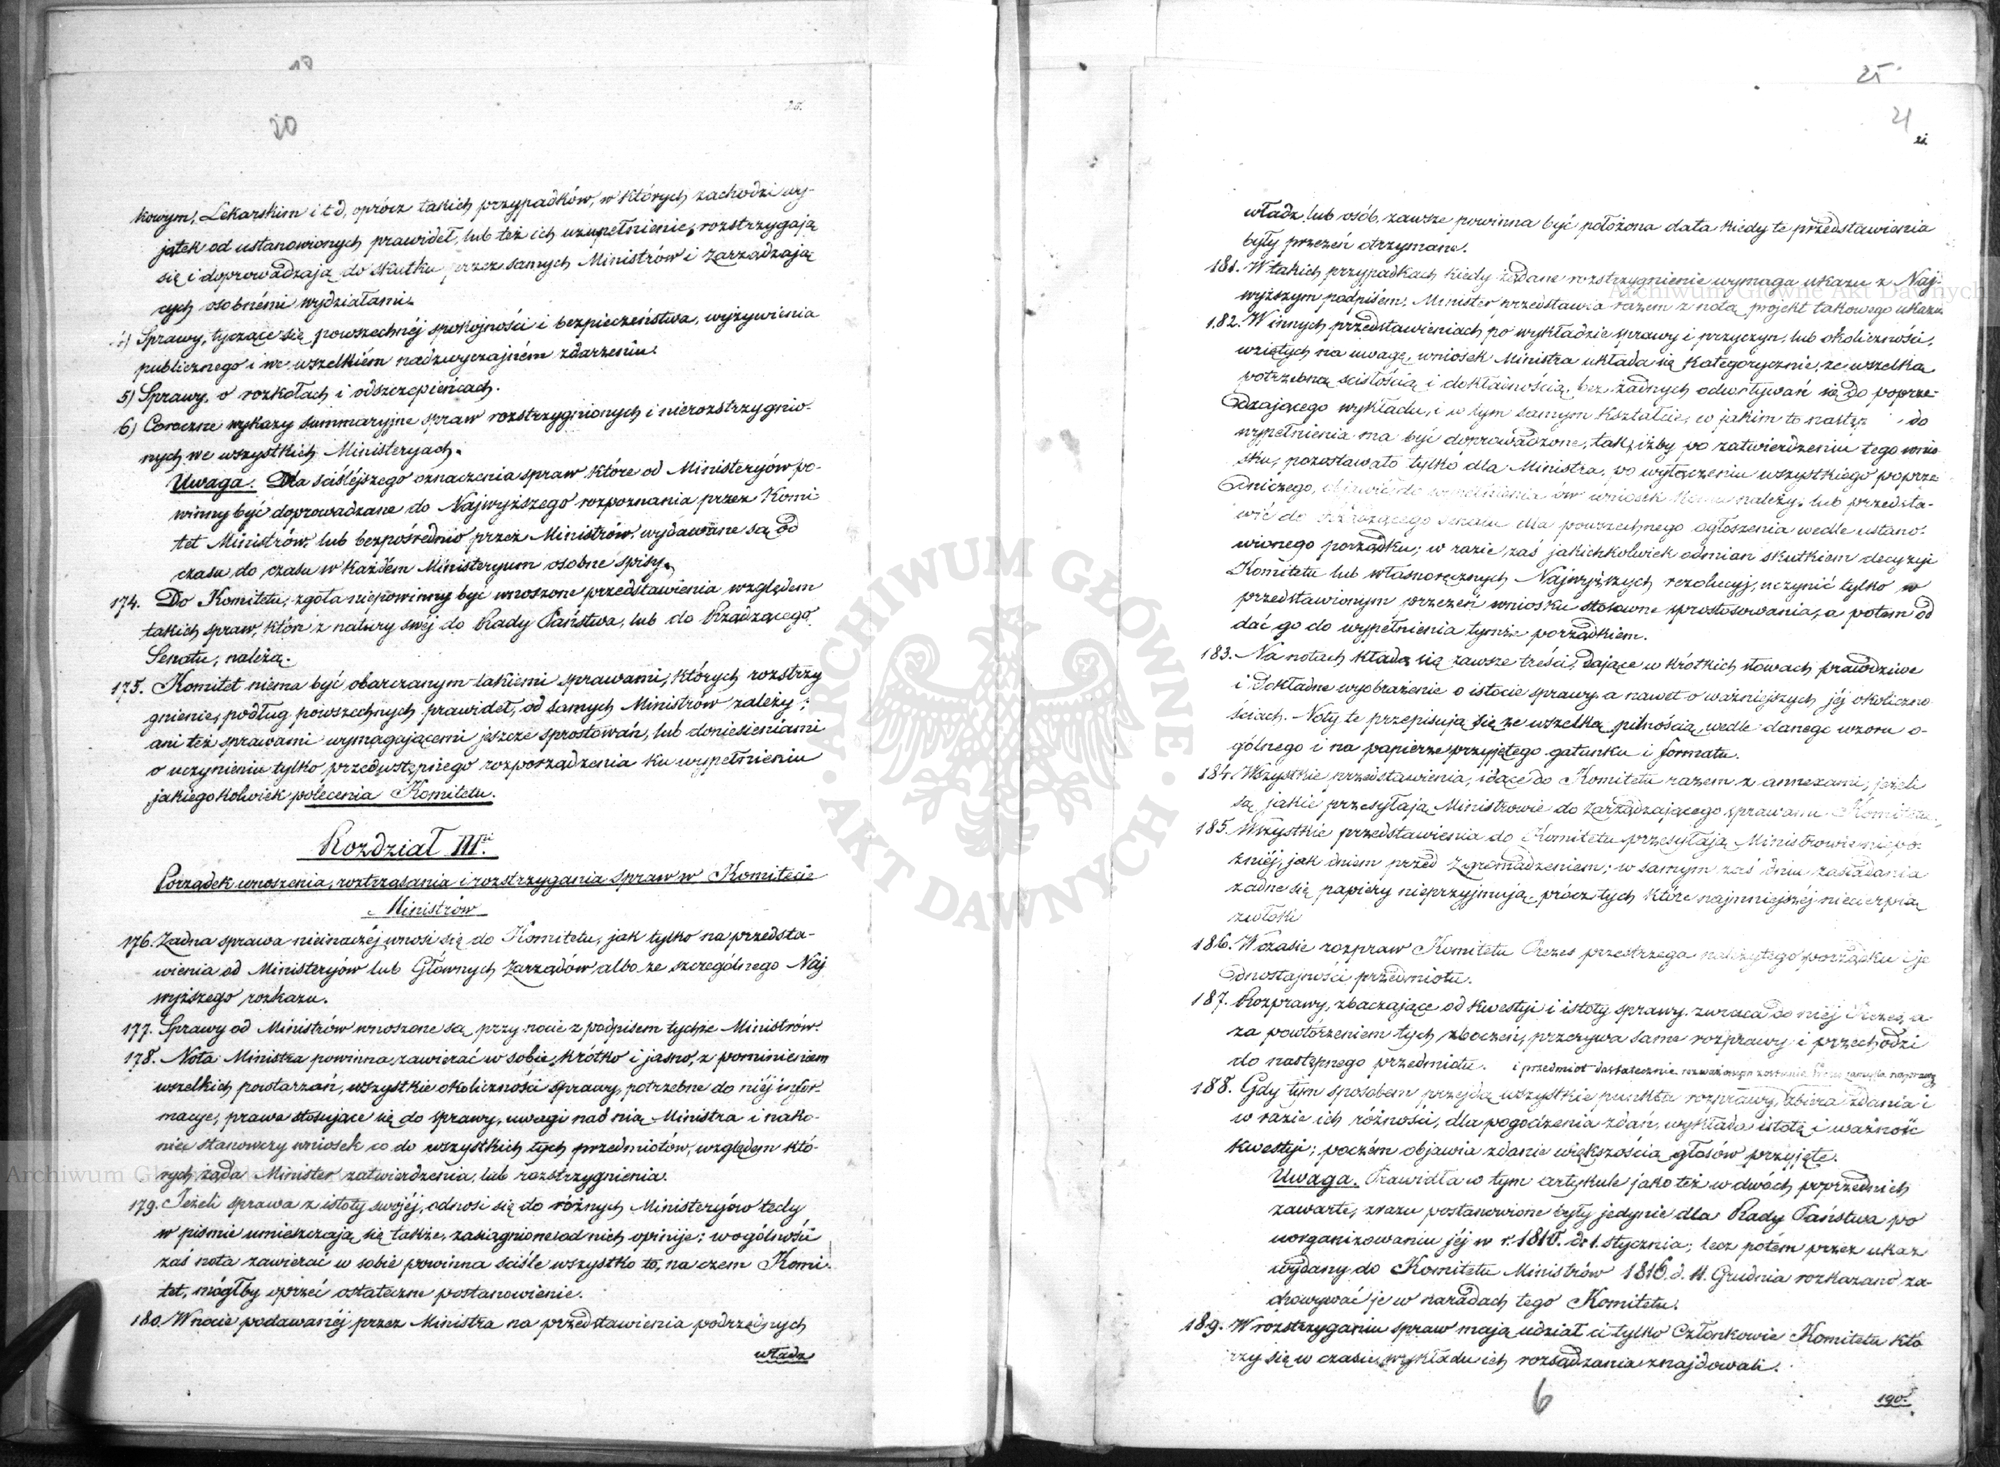 20
20.
kowym, Lekarskim i t d, oprócz takich przypadków, w których zachodzi wy-
jątek od ustanowionych prawideł, lub też ich uzupełnienie, rozstrzygają
się i doprowadzają do skutku przez samych Ministrów i Zarządzają
cych osobnémi wydziałami.
4) Sprawy, tyczące się powszechnéj spokojności i bezpieczeństwa, wyżywienia
publicznego i we wszelkiém nadzwyczajném zdarzeniu.
5) Sprawy, o rozkołach i odszczepieńcach.
6) Coroczne wykazy summaryjne spraw rozstrzygnionych i nierozstrzygnio-
nych we wszystkich Ministeryach.
Uwaga. Dla ściślejszego oznaczenia spraw które od Ministeryów po-
winny być doprowadzane do Najwyższego rozpoznania przez Komi
tet Ministrów lub bezpośrednio przez Ministrów, wydawane są od
czasu do czasu w każdém Ministeryum osobne spisy.
174. Do Komitetu, zgoła niepowinny być wnoszone przedstawienia względem
takich spraw, które z natury swéj do Rady Państwa, lub do Rządzącego
Senatu, należą.
175. Komitet niema być obarczanym takiemi sprawami, których rozstrzy
gnienie, podług powszechnych prawideł, od samych Ministrów zależy;
ani też sprawami wymagającemi jeszcze sprostowań, lub doniesieniami
o uczynieniu tylko przedwstępnego rozporządzenia ku wypełnieniu
jakiegokolwiek polecenia Komitetu.
Rozdział III<sup>ci</sup>.
Porządek wnoszenia, roztrząsania i rozstrzygania spraw w Komitecie
Ministrów
176. Żadna sprawa nieinaczéj wnosi się do Komitetu, jak tylko na przedsta-
wienia od Ministeryów lub Głównych Zarządów albo ze szczególnego Naj
wyższego rozkazu.
177. Sprawy od Ministrów wnoszone są, przy nocie z podpisem tychże Ministrów.
178. Nota Ministra powinna, zawierać w sobie, krótko i jasno, z pominieniem
wszelkich powtarzań, wszystkie okoliczności sprawy, potrzebne do niéj infor-
macye, prawa stosujące się do sprawy, uwagi nad nią Ministra i nako-
niec stanowczy wniosek co do wszystkich tych przedmiotów, względem któ-
rych żąda Minister zatwierdzenia, lub rozstrzygnienia.
179. Jeżeli sprawa z istoty swojéj, odnosi się do różnych Ministeryów tedy
w piśmie umieszczają się także, zasiągnione od nich opinije; w ogólności
zaś nota zawierać w sobie powinna ściśle wszystko to, na czem Komi-
tet, mógłby oprzeć ostateczne postanowienie.
180. W nocie podawanéj przez Ministra na przedstawienia podrzędnych
władz
25
21
21.
władz, lub osób, zawsze powinna być położona data kiedy te przedstawienia
były przezeń otrzymane.
181. W takich przypadkach kiedy żądane rozstrzygnienie wymaga ukazu z Naj-
wyższym podpisem, Minister przedstawia razem z notą projekt takowego ukazu.
182. W innych przedstawieniach po wykładzie sprawy i przyczyn, lub okoliczności,
wziętych na uwagę, wniosek Ministra układa się kategorycznie, ze wszelką
potrzebną ścisłością i dokładnością, bez żadnych odwoływań się do poprze-
dzającego wykładu, i w tym samym kształcie, w jakim to do
wypełnienia ma być doprowadzone, tak, iżby po zatwierdzeniu tego wnio
sku, pozostawało tylko dla Ministra, po wyłączeniu wszystkiego poprze
dniczego, objawić do wypełnienia ów wniosek komu należy, lub przedsta-
wić do Rządzącego Senatu dla powszechnego ogłoszenia wedle ustano-
wionego porządku; w razie, zaś jakichkolwiek odmian skutkiem decyzyi
Komitetu lub własnoręcznych Najwyższych rezolucyj, uczynić tylko w
przedstawionym przezeń wniosku stosowne sprostowania, a potem od
dać go do wypełnienia tymże porządkiem.
183. Na notach kładą się zawsze treści, dające w krótkich słowach prawdziwe
i dokładne wyobrażenie o istocie sprawy, a nawet o ważniejszych jéj okoliczno
ściach. Noty te przepisują się ze wszelką pilnością, wedle danego wzoru o-
gólnego i na papierze przyjętego gatunku i formatu.
184. Wszystkie przedstawienia, idące do Komitetu razem z annexami, jeżeli
są jakie przesyłają Ministrowie do Zarządzającego sprawami Komitetu.
185. Wszystkie przedstawienia do Komitetu przesyłają Ministrowie niepo-
źniéj, jak dniem przed Zgromadzeniem; w samym zaś dniu zasiadania
żadne się papiery nieprzyjmują, prócz tych które najmniejszéj niecierpią
zwłoki
186. W czasie rozpraw Komitetu Prezes przestrzega należytego porządku i je
dnostajności przedmiotu.
187. Rozprawy, zbaczające od kwestyi i istoty sprawy, zwraca do niéj Prezes, a
za powtórzeniem tych zboczeń, przerywa same rozprawy i przechodzi
do następnego przedmiotu.
i przedmiot dostatecznie rozważonym zostanie Prezes zamyka rozprawy
188. Gdy tym sposobem przejdą wszystkie punkta rozprawy, zbiera zdania i
w razie ich różności, dla pogodzenia zdań, wykłada istotę i ważność
kwestyi; poczém objawia zdanie większością głosów przyjęte.
Uwaga. Prawidła w tym artykule jako też w dwóch poprzednich
zawarte, zrazu postanowione były jedynie dla Rady Państwa po
uorganizowaniu jéj w r. 1810. d. 1. stycznia; lecz potém przez ukaz
wydany do Komitetu Ministrów 1816. d. 11. Grudnia rozkazano za-
chowywać je w naradach tego Komitetu.
189. W rozstrzyganiu spraw mają udział ci tylko Członkowie Komitetu któ
rzy się w czasie wykładu ich rozsądzania znajdowali.
6
190.
ARCHIWUM GŁÓWNE AKT DAWNYCH
Archiwum Główne Akt Dawnych